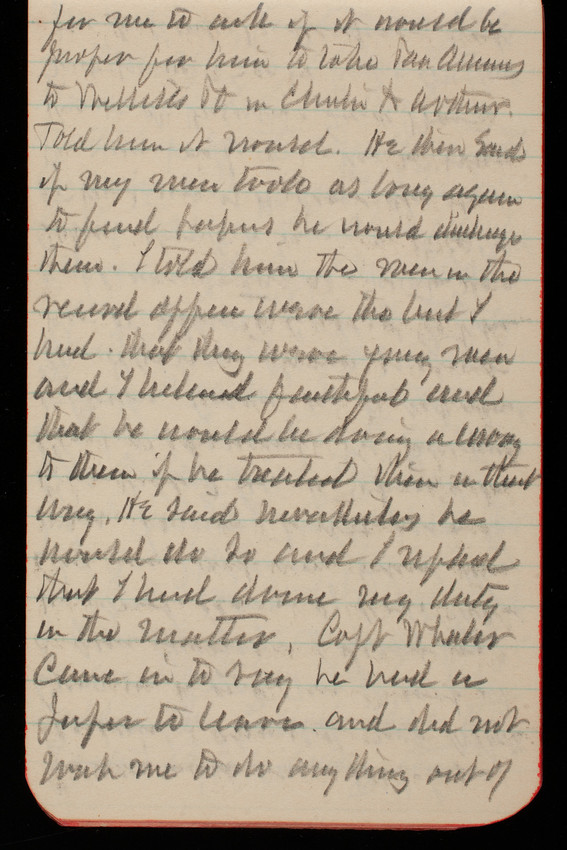 for me to ask if it would be
proper for him to take
to in &
Told him it would. He then said
if my men took as long again
to find papers he would discharge
them. I told him the men in the
record office were the best I
had. that they were young men
and I believed faithful and
that he would be doing a wrong
to them if he treated them in that
way. He said nevertheless he
would do so and I replied
that I had done my duty
in the matter. Capt Wheeler
came in to say he had a
to leave and did not
wah me to do anything out of